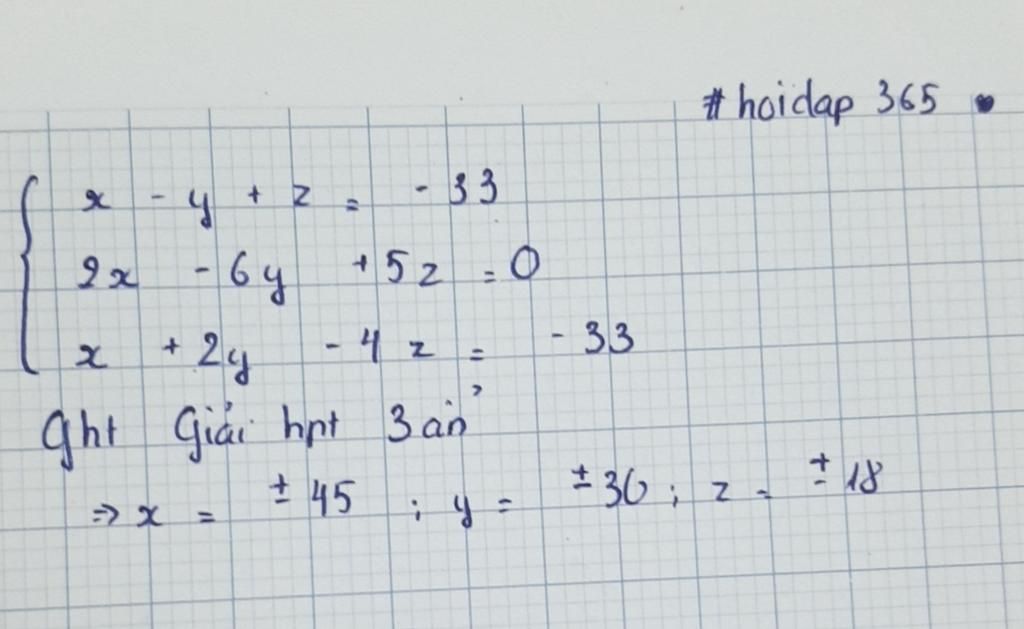 #hoidap 365
x - y + z = -33
2x - 6y + 5z = 0
x + 2y - 4z = -33
Ght Giải hpt 3 ẩn
=> x = ± 45 ; y = ± 30 ; z = ± 18